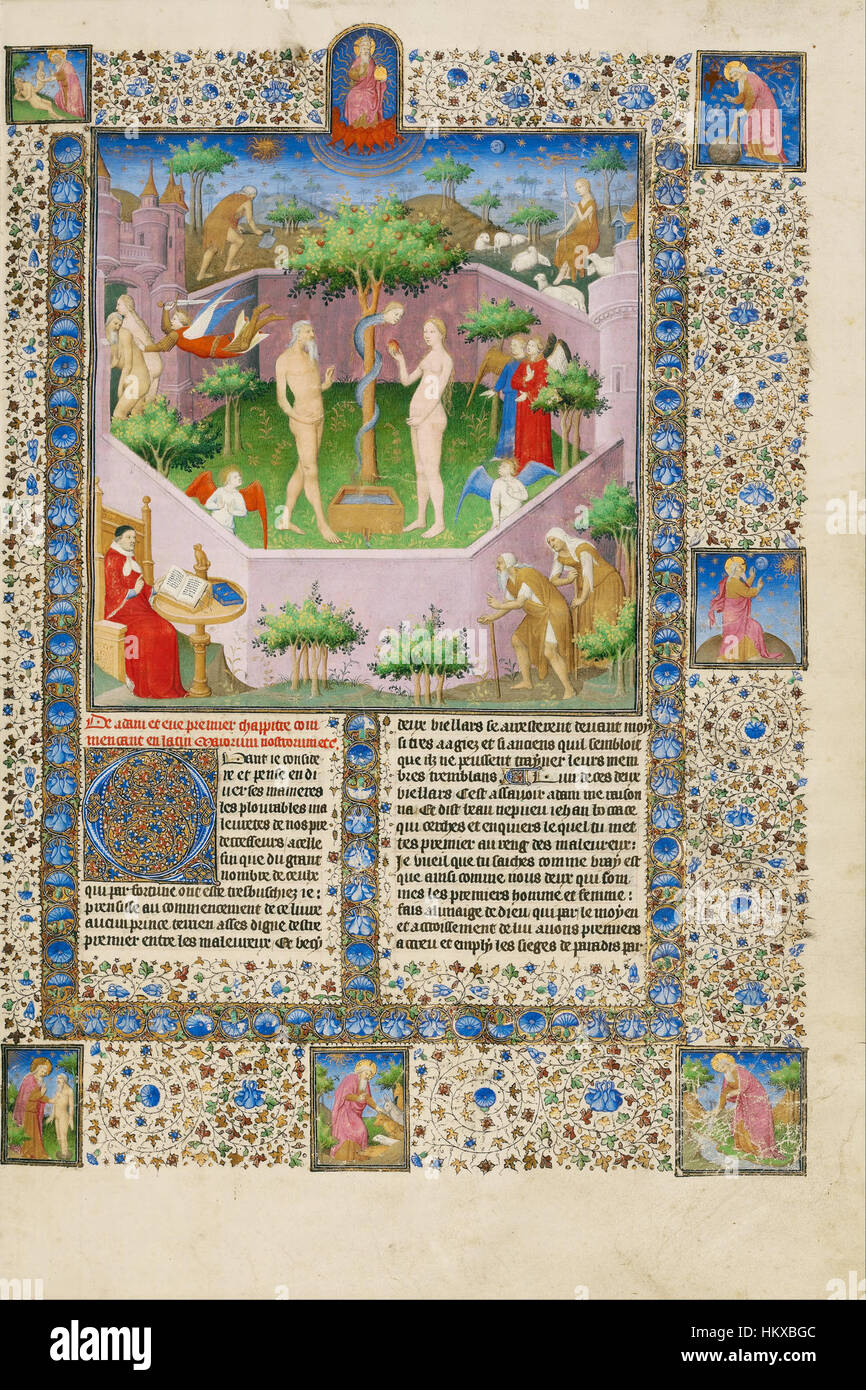 De adam et eue premier chappitre com
mencant en latin Maiorum nostrorum etc.
Quant ie conside
re et pense en di
uerses manieres
les plourables ma
leuretes de nos pre
decesseurs a celle
fin que du grant
nombre de ceulx
qui par fortune ont este tresbuschiez ie
prensisse au commencement de ce liure
aucun prince terrien asses digne destre
premier entre les maleureux Et vecy
deux viellars se aresterent deuant moy
si tres aagiez et si anciens quil sembloit
que ilz ne peussent trayner leurs mem
bres tremblans Lun de ces deux
viellars Cest assauoir adam me raison
na Et dist beau nepueu iehan bocace
qui cerches et enquiers le quel tu met
tes premier au reng des maleureux:
Je vueil que tu saches comme vray est
que ainsi comme nous deux qui som
mes les premiers homme et femme:
fais a limaige de dieu qui par le moyen
et accroissement de lui auons premiers
acreu et emply les sieges de paradis par
alamy
Image ID: HKXBGC
www.alamy.com